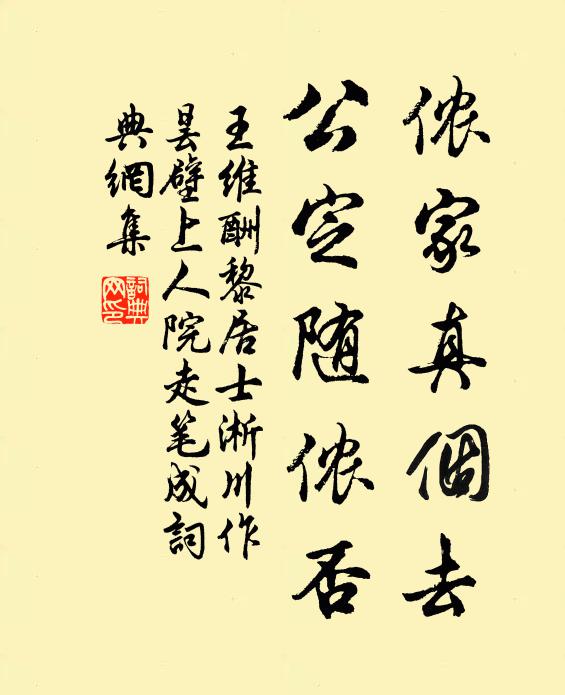 侬家真個去
公定随侬否
王维酬黎居士淅川作
昙壁上人院走笔成詞
典網集
詞典
网印